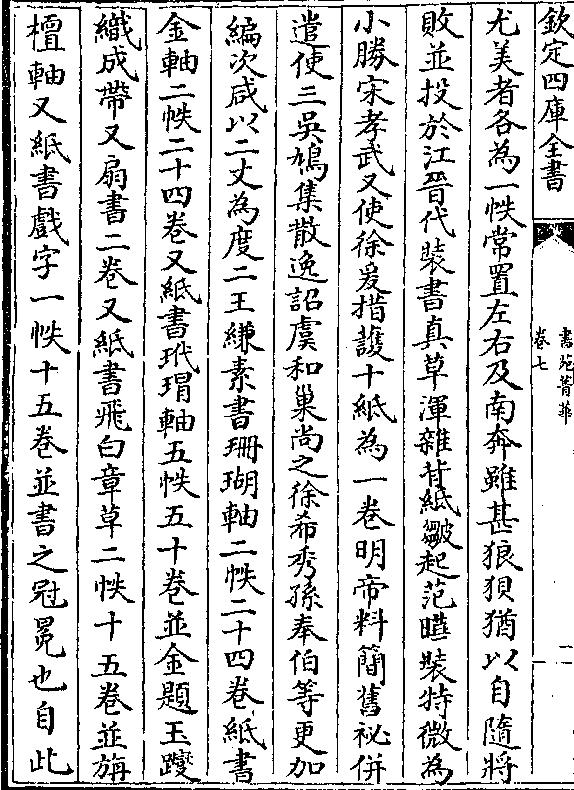 欽定四庫全書
書苑菁華
卷七
二
尤美者各為一帙常置左右及南奔雖甚狼狽猶以自隨將
敗並投於江晉代裝書真草渾雜背紙皺起范瞱裝特微為
小勝宋孝武又使徐爰措䕶十紙為一卷明帝料簡舊祕併
遣使三吳鳩集散逸詔虞和巢尚之徐希秀孫奉伯等更加
編次咸以二丈為度二王縑素書珊瑚軸二帙二十四卷紙書
金軸二帙二十四卷又紙書玳瑁軸五帙五十卷並金題玉躞
織成帶又扇書二卷又紙書飛白章草二帙十五卷並旃
檀軸又紙書戲字一帙十五卷並書之冠冕也自此